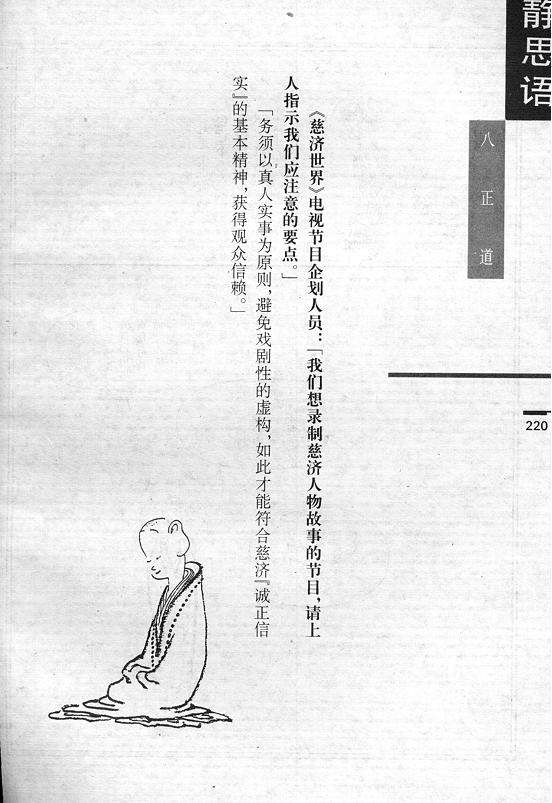 静思语
八正道
220
《慈济世界》电视节目企划人员：「我们想录制慈济人物故事的节目，请上
人指示我们应注意的要点。」
「务须以真人实事为原则，避免戏剧性的虚构，如此才能符合慈济『诚正信
实』的基本精神，获得观众信赖。」